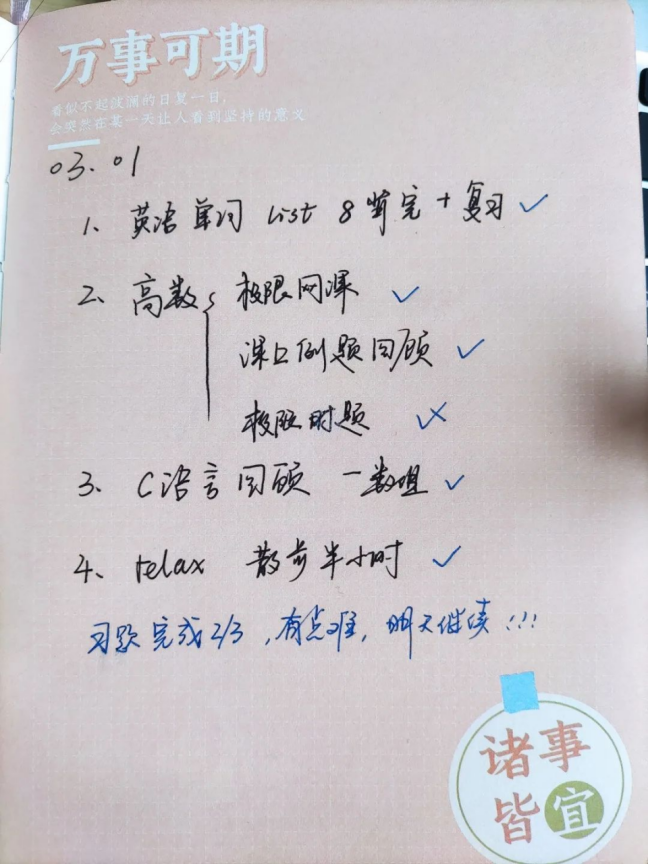 万事可期
看似不起波澜的日复一日,
会突然在某一天让人看到坚持的意义
03.01
1、英语单词 list 8 背完 + 复习 ✓
2、高数 { 极限网课 ✓
课上例题回顾 ✓
极限习题 ✓✗
3、C语言回顾 — 数组 ✓
4、relax 散步半小时 ✓
习题完成2/3,有点难,明天继续!!!
诸事
皆宜